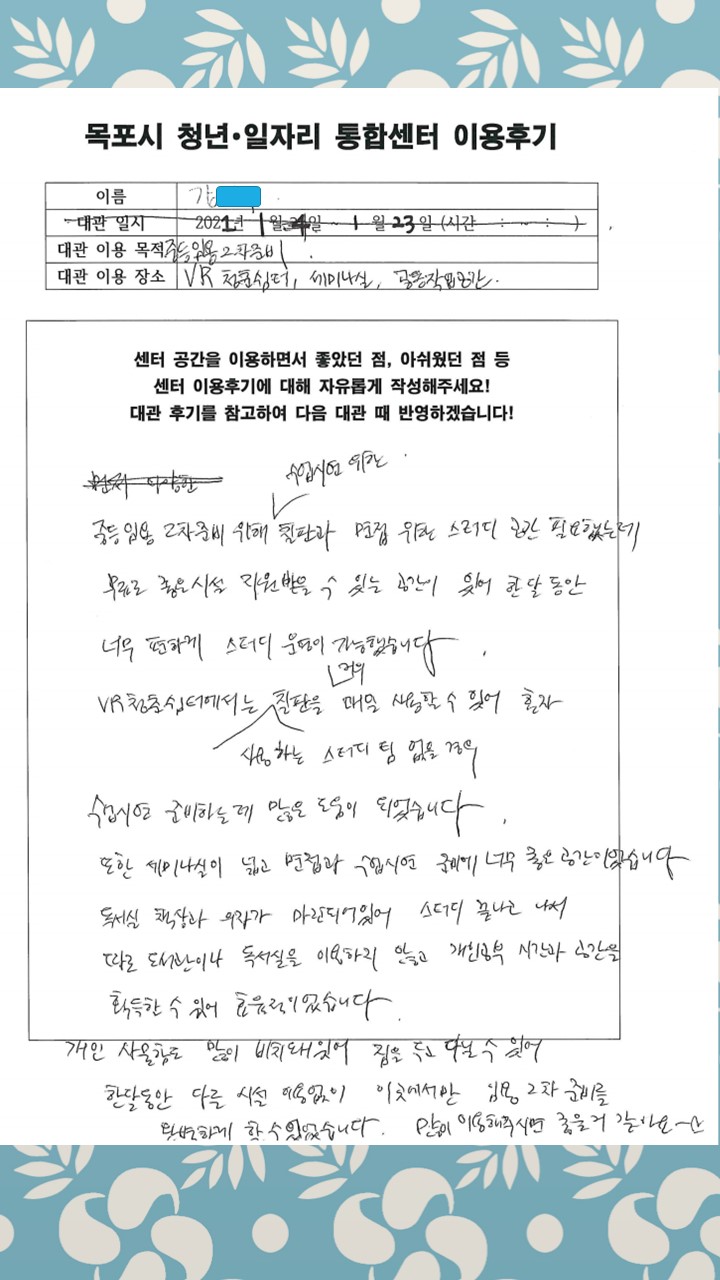 목포시 청년·일자리 통합센터 이용후기
이름 김
대관 일시 2021년 1월 4일 ~ 1월 23일 (시간 : ~ : )
대관 이용 목적 중등임용 2차준비
대관 이용 장소 VR 청춘쉼터, 세미나실, 공동작업공간.
센터 공간을 이용하면서 좋았던 점, 아쉬웠던 점 등
센터 이용후기에 대해 자유롭게 작성해주세요!
대관 후기를 참고하여 다음 대관 때 반영하겠습니다!
수업시연 위한
중등임용 2차준비 위해 칠판과 면접 위한 스터디 공간 필요했는데
무료로 좋은 시설 지원받을 수 있는 공간이 있어 한 달 동안
너무 편하게 스터디 운영이 가능했습니다.
거의
VR청춘쉼터에서는 칠판을 매일 사용할 수 있어 혼자
사용하는 스터디 팀 없을 경우
수업시연 준비하는데 많은 도움이 되었습니다.
또한 세미나실이 넓고 면접과 수업시연 준비에 너무 좋은 공간이었습니다
독서실 책상과 의자가 마련되어있어 스터디 끝나고 나서
따로 도서관이나 독서실을 이용하지 않고 개인공부 시간과 공간을
획득할 수 있어 효율적이었습니다.
개인 사물함도 많이 비치돼있어 짐을 두고 다닐 수 있어
한달동안 다른 시설 이용없이 이곳에서만 임용 2차 준비를
완벽하게 할 수 있었습니다. 많이 이용해주시면 좋을거 같아요~